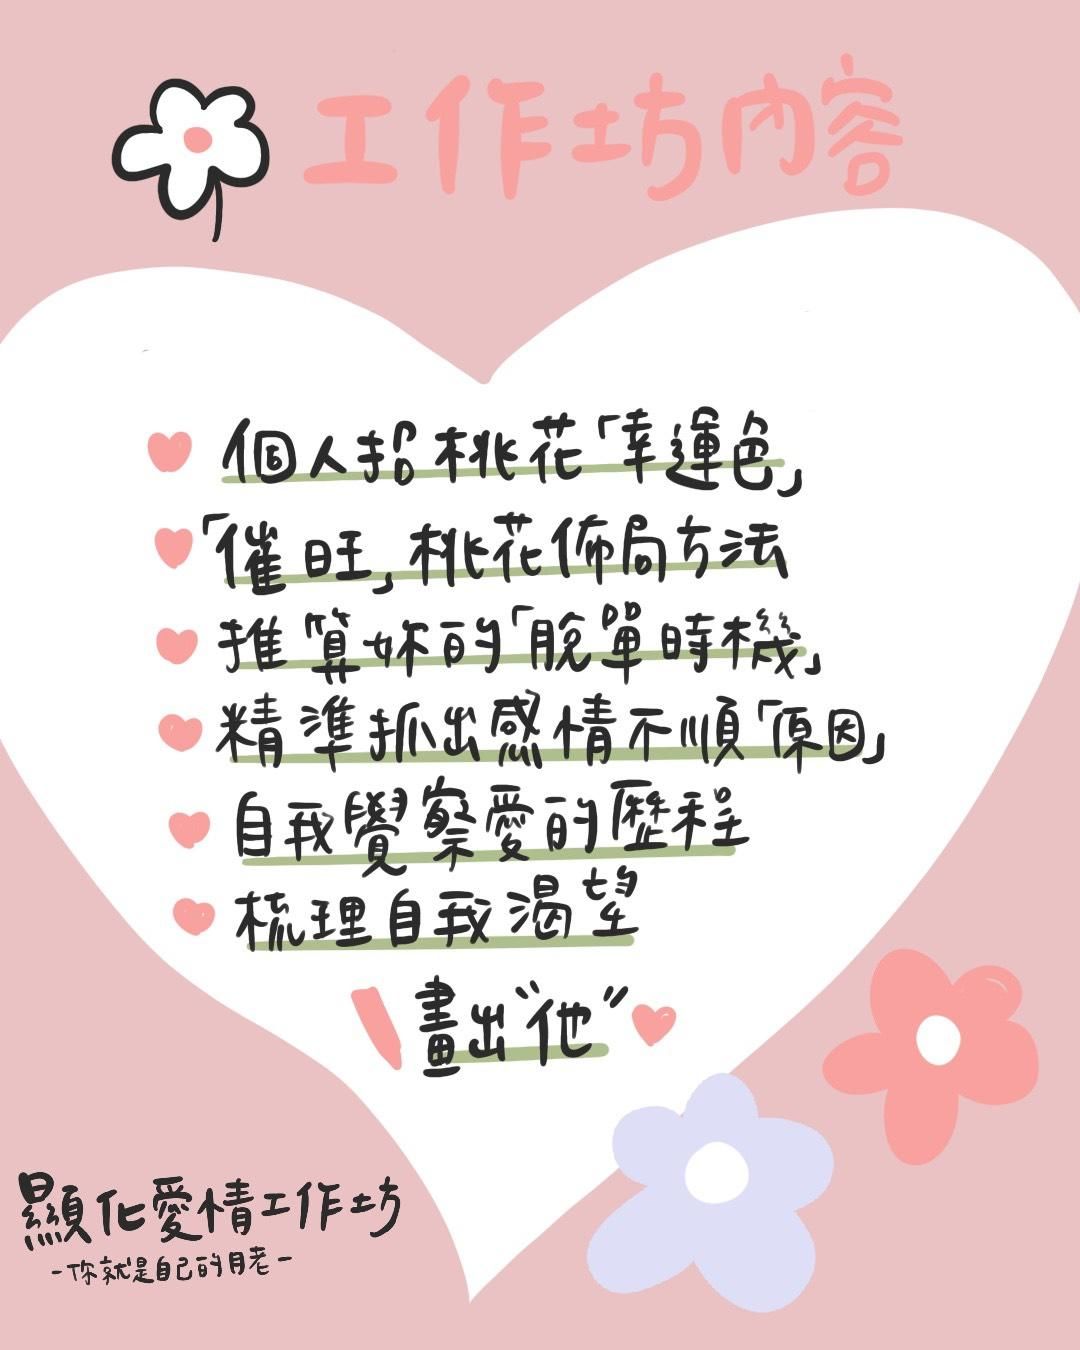 工作坊內容
個人招桃花「幸運色」
「催旺」桃花佈局方法
推算妳的「脫單時機」
精準抓出感情不順「原因」
自我覺察愛的歷程
梳理自我渴望
畫出“他”
顯化愛情工作坊
-你就是自己的月老-